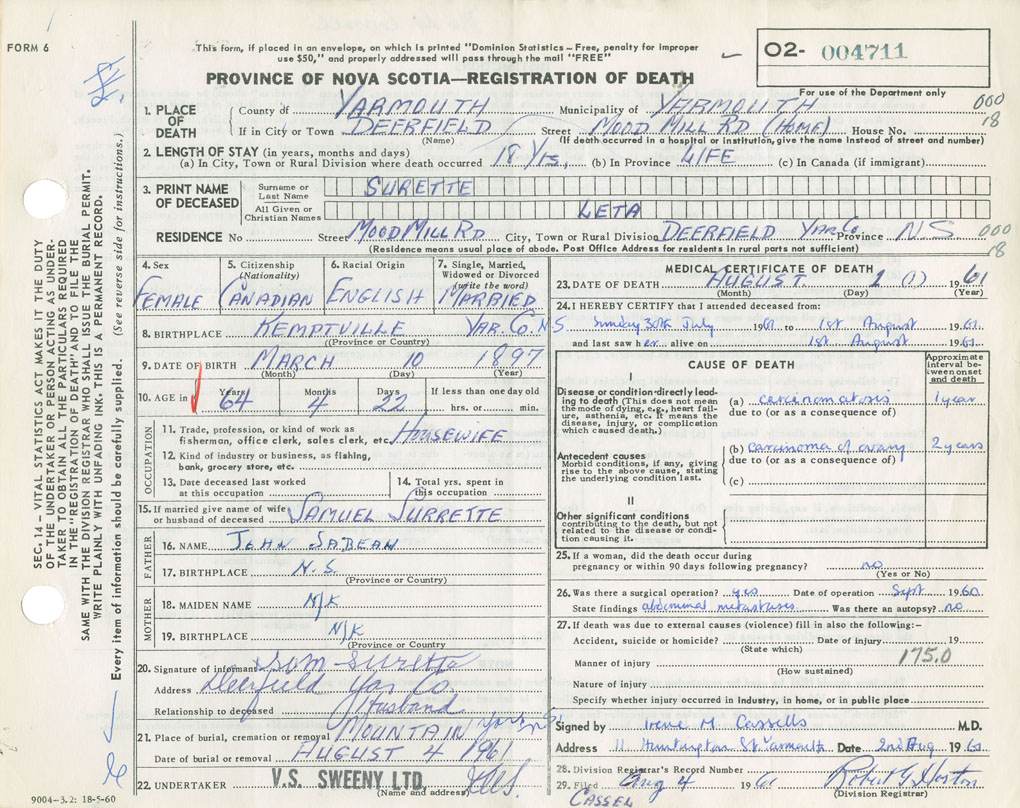 FORM 6
This form, if placed in an envelope, on which is printed "Dominion Statistics – Free, penalty for improper
use $50," and properly addressed will pass through the mail "FREE"
O2- 004711
For use of the Department only
PROVINCE OF NOVA SCOTIA—REGISTRATION OF DEATH
000
18
1. PLACE OF DEATH County of YARMOUTH Municipality of YARMOUTH
If in City or Town DEERFIELD Street MOOD MILL RD (HOME) House No.
(Name) (If death occurred in a hospital or institution, give the name instead of street and number)
2. LENGTH OF STAY (in years, months and days)
(a) In City, Town or Rural Division where death occurred 18 Yrs, (b) In Province LIFE (c) In Canada (if immigrant)
3. PRINT NAME OF DECEASED Surname or Last Name SURETTE
All Given or Christian Names LETA
RESIDENCE No Street MOOD MILL RD City, Town or Rural Division DEERFIELD YAR.Co. Province N S
000
18
(Residence means usual place of abode. Post Office Address for residents in rural parts not sufficient)
4. Sex
FEMALE
5. Citizenship (Nationality)
CANADIAN
6. Racial Origin
ENGLISH
7. Single, Married, Widowed or Divorced (write the word)
MARRIED
8. BIRTHPLACE KEMPTVILLE YAR. Co. N.S.
(Province or Country)
9. DATE OF BIRTH MARCH 10 1897
(Month) (Day) (Year)
10. AGE in Years 64 Months 4 Days 22 If less than one day old
hrs. or min.
OCCUPATION
11. Trade, profession, or kind of work as
fisherman, office clerk, sales clerk, etc. HOUSEWIFE
12. Kind of industry or business, as fishing,
bank, grocery store, etc.
13. Date deceased last worked
at this occupation
14. Total yrs. spent in
this occupation
15. If married give name of wife
or husband of deceased SAMUEL SURRETTE
FATHER
16. NAME JOHN SABEAN
17. BIRTHPLACE N.S.
(Province or Country)
MOTHER
18. MAIDEN NAME N/K
19. BIRTHPLACE N/K
(Province or Country)
20. Signature of informant Sam Surette
Address Deerfield Yar Co.
Relationship to deceased Husband
21. Place of burial, cremation or removal MOUNTAIN
Date of burial or removal AUGUST 4 1961
22. UNDERTAKER V.S. SWEENY LTD.
(Name and address)
9004-3.2: 18-5-60
MEDICAL CERTIFICATE OF DEATH
23. DATE OF DEATH AUGUST 1 (1) 1961
(Month) (Day) (Year)
24. I HEREBY CERTIFY that I attended deceased from:
Sunday 30th July 1961 to 1st August 1961
and last saw her alive on 1st August 1961
CAUSE OF DEATH
Approximate interval between onset and death
I
Disease or condition directly leading to death (This does not mean the mode of dying, e.g., heart failure, asthenia, etc. It means the disease, injury, or complication which caused death.)
(a) carcinomatosis 1 year
due to (or as a consequence of)
Antecedent causes
Morbid conditions, if any, giving rise to the above cause, stating the underlying condition last.
(b) carcinoma of ovary 2 years
due to (or as a consequence of)
(c)
II
Other significant conditions
contributing to the death, but not related to the disease or condition causing it.
25. If a woman, did the death occur during
pregnancy or within 90 days following pregnancy? no
(Yes or No)
26. Was there a surgical operation? yes Date of operation Sept 1960
State findings abdominal metastases Was there an autopsy? no
27. If death was due to external causes (violence) fill in also the following:–
Accident, suicide or homicide? Date of injury 19
(State which)
175.0
Manner of injury
(How sustained)
Nature of injury
Specify whether injury occurred in industry, in home, or in public place
Signed by Irene M. Cassells M.D.
Address 11 Huntington St Yarmouth Date 2nd Aug 1961
28. Division Registrar's Record Number
29. Filed Aug 4 1961 Robert G. Horton
CASSEL (Division Registrar)
SEC. 14 – VITAL STATISTICS ACT MAKES IT THE DUTY
OF THE UNDERTAKER OR PERSON ACTING AS UNDER-
TAKER TO OBTAIN ALL THE PARTICULARS REQUIRED
IN THE "REGISTRATION OF DEATH" AND TO FILE THE
SAME WITH THE DIVISION REGISTRAR WHO SHALL ISSUE THE BURIAL PERMIT.
WRITE PLAINLY WITH UNFADING INK. THIS IS A PERMANENT RECORD.
Every item of information should be carefully supplied. (See reverse side for instructions.)